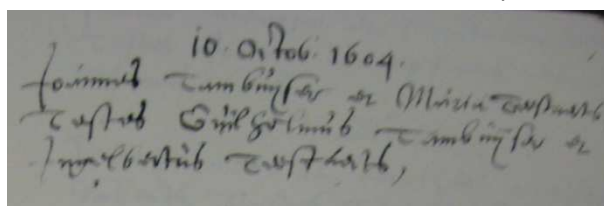 10. Octob: 1604.
Joannes Tambuÿser et Maria Testaerts
Testes Guilhelmus Tambuÿser et
Ingelbertus Testaerts,